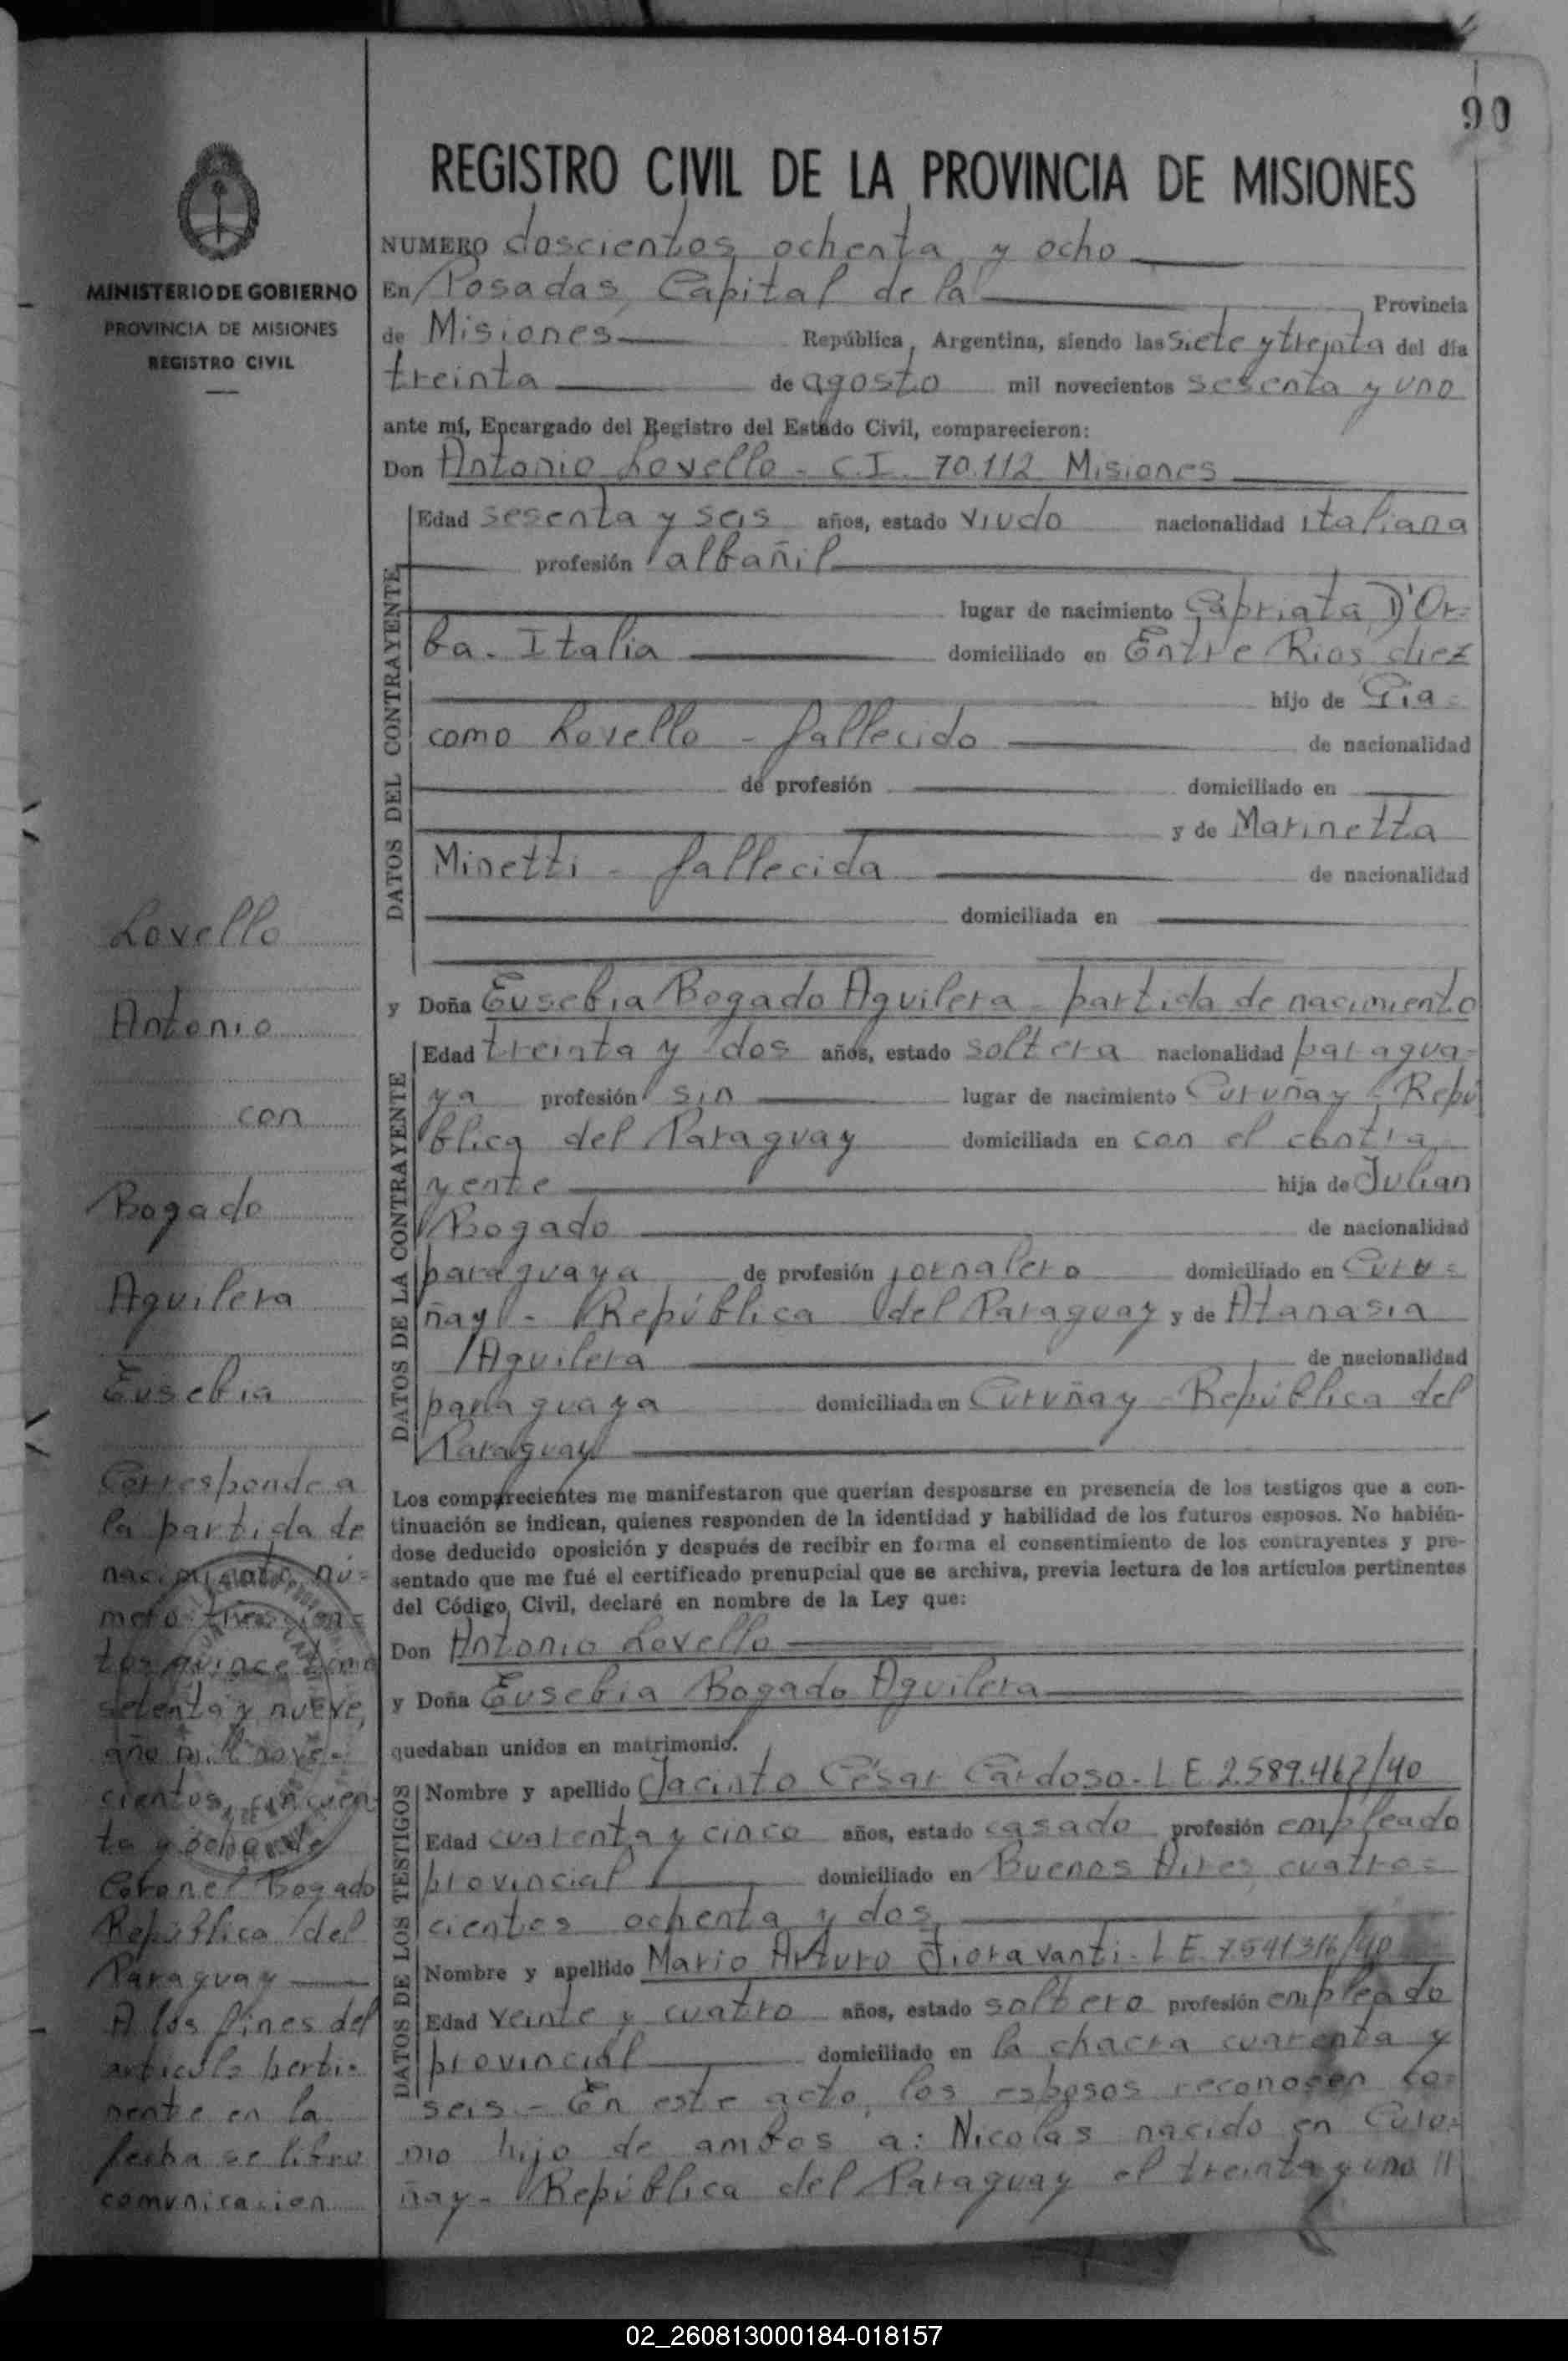 90
REGISTRO CIVIL DE LA PROVINCIA DE MISIONES
MINISTERIO DE GOBIERNO
PROVINCIA DE MISIONES
REGISTRO CIVIL
NUMERO doscientos ochenta y ocho
En Posadas, Capital de la Provincia
de Misiones República Argentina, siendo las siete y treinta del día
treinta de agosto mil novecientos sesenta y uno
ante mí, Encargado del Registro del Estado Civil, comparecieron:
Don Antonio Lovello - C.I. 70.112 Misiones
DATOS DEL CONTRAYENTE
Edad sesenta y seis años, estado viudo nacionalidad italiana
profesión albañil
lugar de nacimiento Capriata D'Or=
ba. Italia domiciliado en Entre Rios diez
hijo de Gia=
como Lovello - fallecido de nacionalidad
de profesión domiciliado en
y de Marinetta
Minetti - fallecida de nacionalidad
domiciliada en
y Doña Eusebia Bogado Aguilera - partida de nacimiento
DATOS DE LA CONTRAYENTE
Edad treinta y dos años, estado soltera nacionalidad paragua=
ya profesión sin lugar de nacimiento Curuñay - Repú
blica del Paraguay domiciliada en con el contra
yente hija de Julian
Bogado de nacionalidad
paraguaya de profesión jornalero domiciliado en Curu=
ñay - República del Paraguay y de Atanasia
Aguilera de nacionalidad
paraguaya domiciliada en Curuñay - República del
Paraguay
Los comparecientes me manifestaron que querían desposarse en presencia de los testigos que a con-
tinuación se indican, quienes responden de la identidad y habilidad de los futuros esposos. No habién-
dose deducido oposición y después de recibir en forma el consentimiento de los contrayentes y pre-
sentado que me fué el certificado prenupcial que se archiva, previa lectura de los artículos pertinentes
del Código Civil, declaré en nombre de la Ley que:
Don Antonio Lovello
y Doña Eusebia Bogado Aguilera
quedaban unidos en matrimonio.
DATOS DE LOS TESTIGOS
Nombre y apellido Jacinto César Cardoso - L E. 2.589.467/40
Edad cuarenta y cinco años, estado casado profesión empleado
provincial domiciliado en Buenos Aires cuatro=
cientos ochenta y dos
Nombre y apellido Mario Arturo Fioravanti - L E. 7.541316/40
Edad veinte y cuatro años, estado soltero profesión empleado
provincial domiciliado en la chacra cuarenta y
seis - En este acto, los esposos reconocen co=
mo hijo de ambos a: Nicolas nacido en Curu=
ñay - República del Paraguay el treinta y uno //
Lovello
Antonio
con
Bogado
Aguilera
Eusebia
Corresponde a
la partida de
nacimiento nú=
mero trescien=
tos quince tomo
setenta y nueve,
año mil nove=
cientos cincuen
ta y ocho de
Coronel Bogado
República del
Paraguay
A los fines del
artículo perti=
nente en la
fecha se libro
comunicacion
02_260813000184-018157